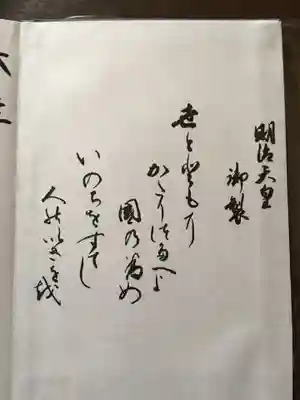 明治天皇
御製
世とともに
かたりつたへよ
國乃為め
いのちをすてし
人能いさを越